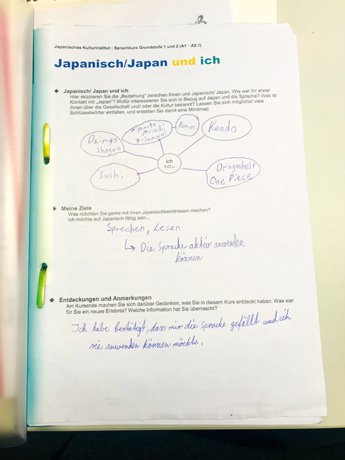 Japanisches Kulturinstitut : Sprachkurs Grundstufe 1 und 2 (A1 - A2.1)
Japanisch/Japan und ich
Japanisch/ Japan und ich
Hier skizzieren Sie die „Beziehung" zwischen Ihnen und Japanisch/ Japan. Wie war Ihr erster
Kontakt mit „Japan"? Wofür interessieren Sie sich in Bezug auf Japan und die Sprache? Was ist
Ihnen über die Gesellschaft und/ oder die Kultur bekannt? Lassen Sie sich möglichst viele
Schlüsselwörter einfallen, und erstellen Sie damit eine Mindmap.
Miyamoto
Musashi
Ronin
Kando
Daimyo
Shogun
ich
Sushi
Dragonball
One Piece
Meine Ziele
Was möchten Sie gerne mit Ihren Japanischkenntnissen machen?
Ich möchte auf Japanisch fähig sein...
Sprechen, Lesen
↳ Die Sprache aktiv anwenden
können
Entdeckungen und Anmerkungen
Am Kursende machen Sie sich darüber Gedanken, was Sie in diesem Kurs entdeckt haben. Was war
für Sie ein neues Erlebnis? Welche Information hat Sie überrascht?
Ich habe bestätigt, dass mir die Sprache gefällt und ich
sie anwenden können möchte.